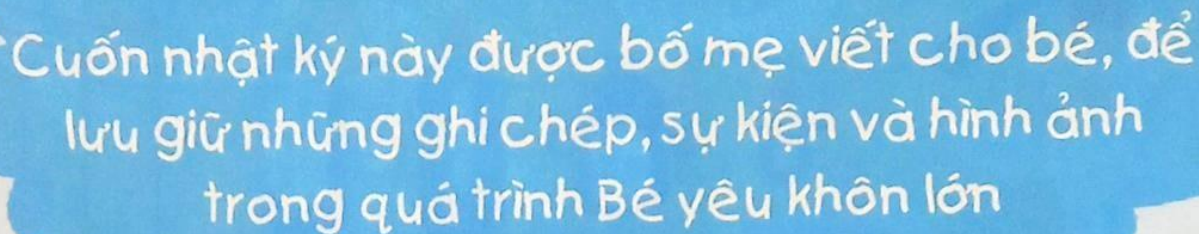 Cuốn nhật ký này được bố mẹ viết cho bé, để
lưu giữ những ghi chép, sự kiện và hình ảnh
trong quá trình Bé yêu khôn lớn